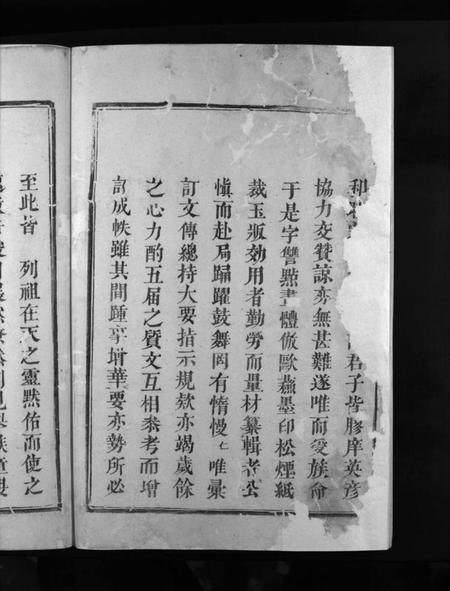 和
君子皆膠庠英彦
協力交贊諒亦無甚難遂唯而受族命
于是字讐點畫體倣歐蘇墨印松煙紙
裁玉版効用者勤勞而量材纂輯者公
愼而赴局踴躍鼓舞罔有惰慢仁唯彙
訂文傳總持大要指示規欸亦竭歲餘
之心力酌五届之質文互相叅考而增
訂成帙雖其間踵事增華要亦勢所必
至此皆 列祖在天之靈默佑而使之